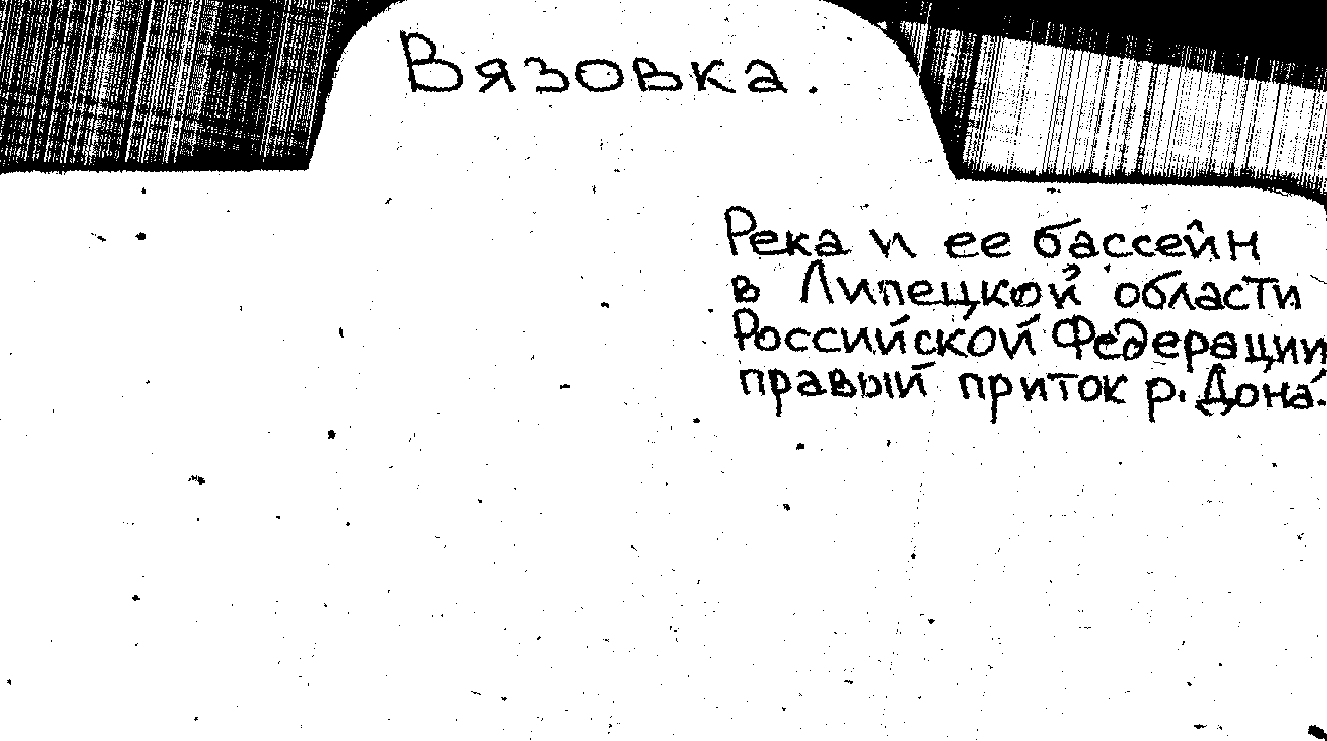 Вязовка.
Река и ее бассейн
в Липецкой области
Российской Федерации
правый приток р. Дона.